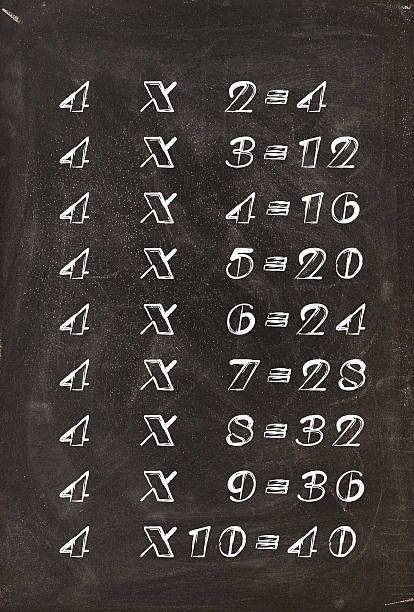 4 X 2=4
4 X 3=12
4 X 4=16
4 X 5=20
4 X 6=24
4 X 7=28
4 X 8=32
4 X 9=36
4 X10=40